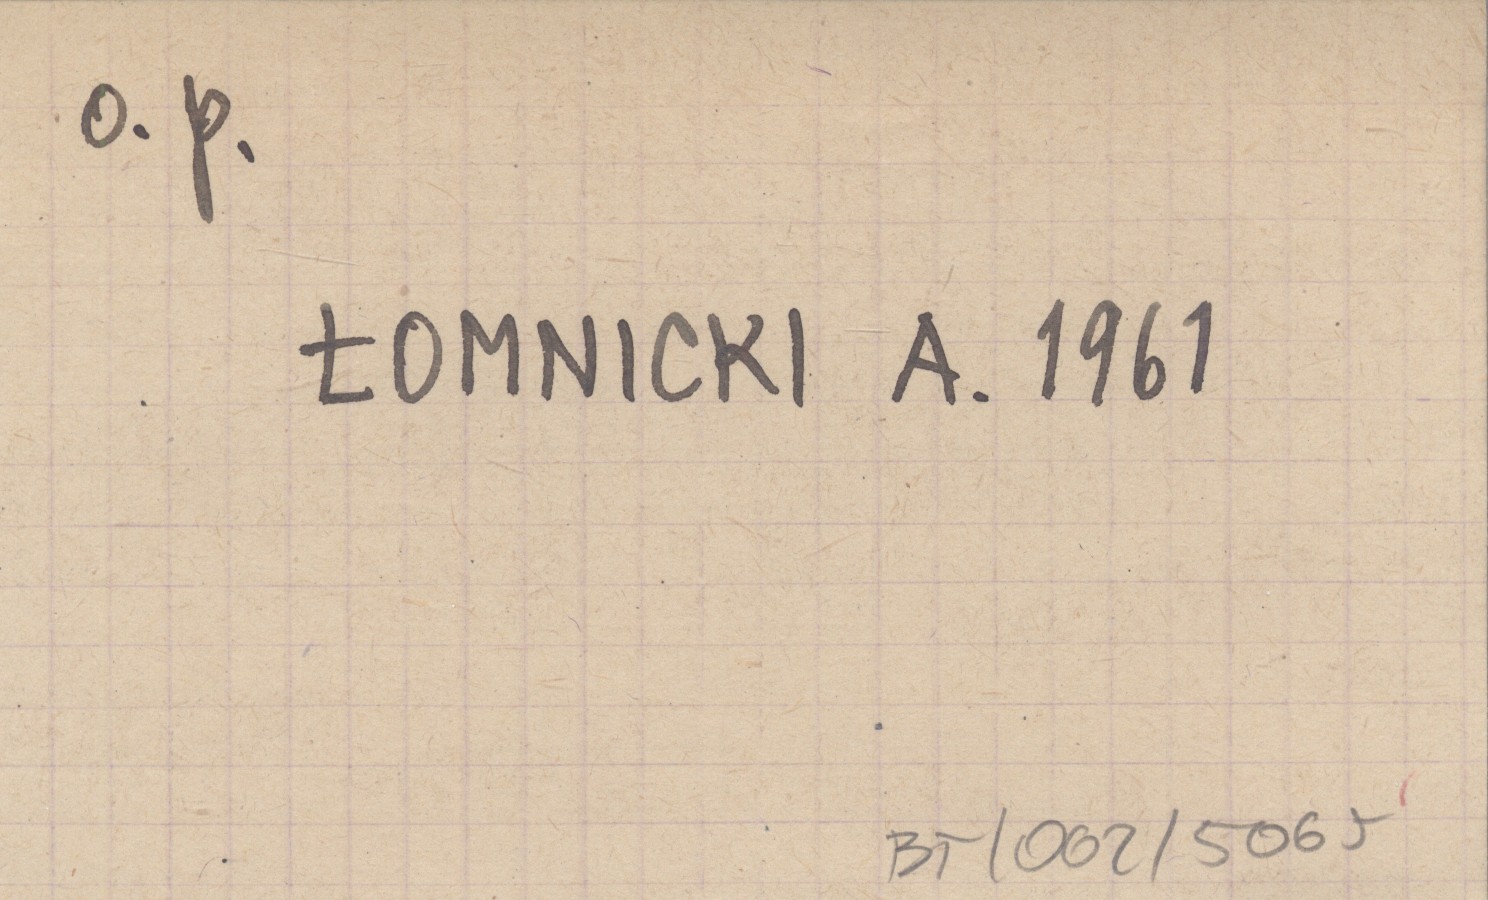 o. p.
ŁOMNICKI A. 1961
BT/002/5065